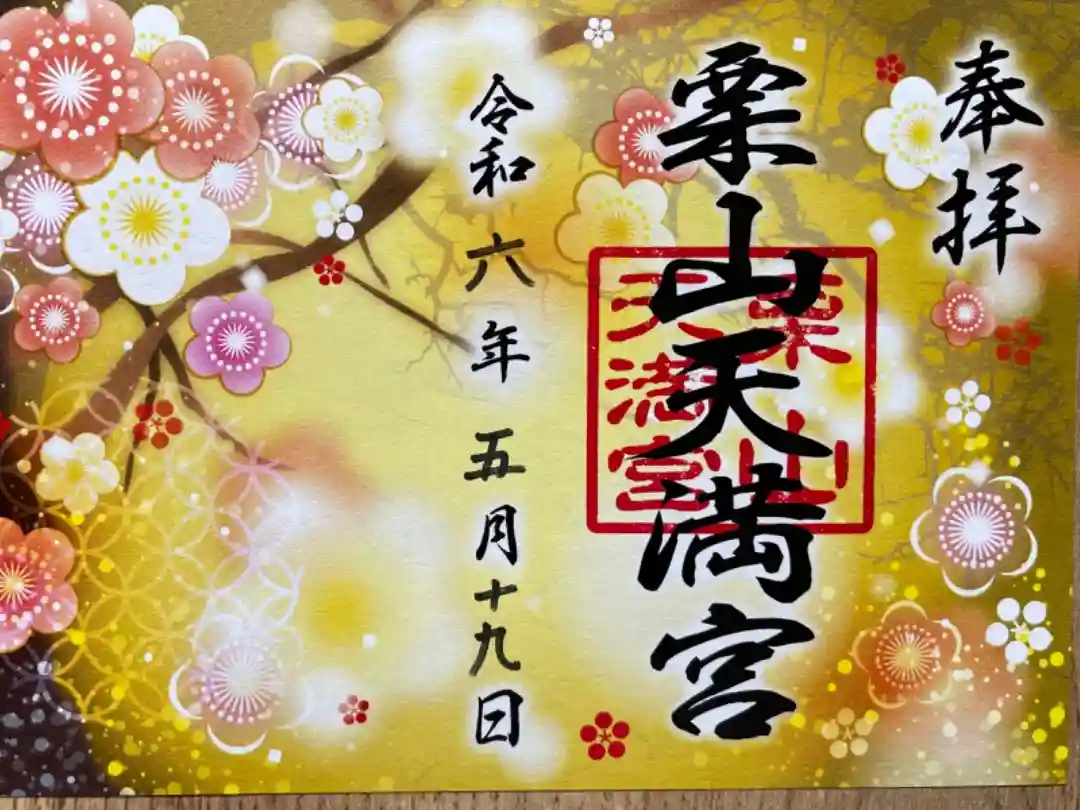 奉拝
栗山天満宮
栗山
天満宮
令和六年五月十九日